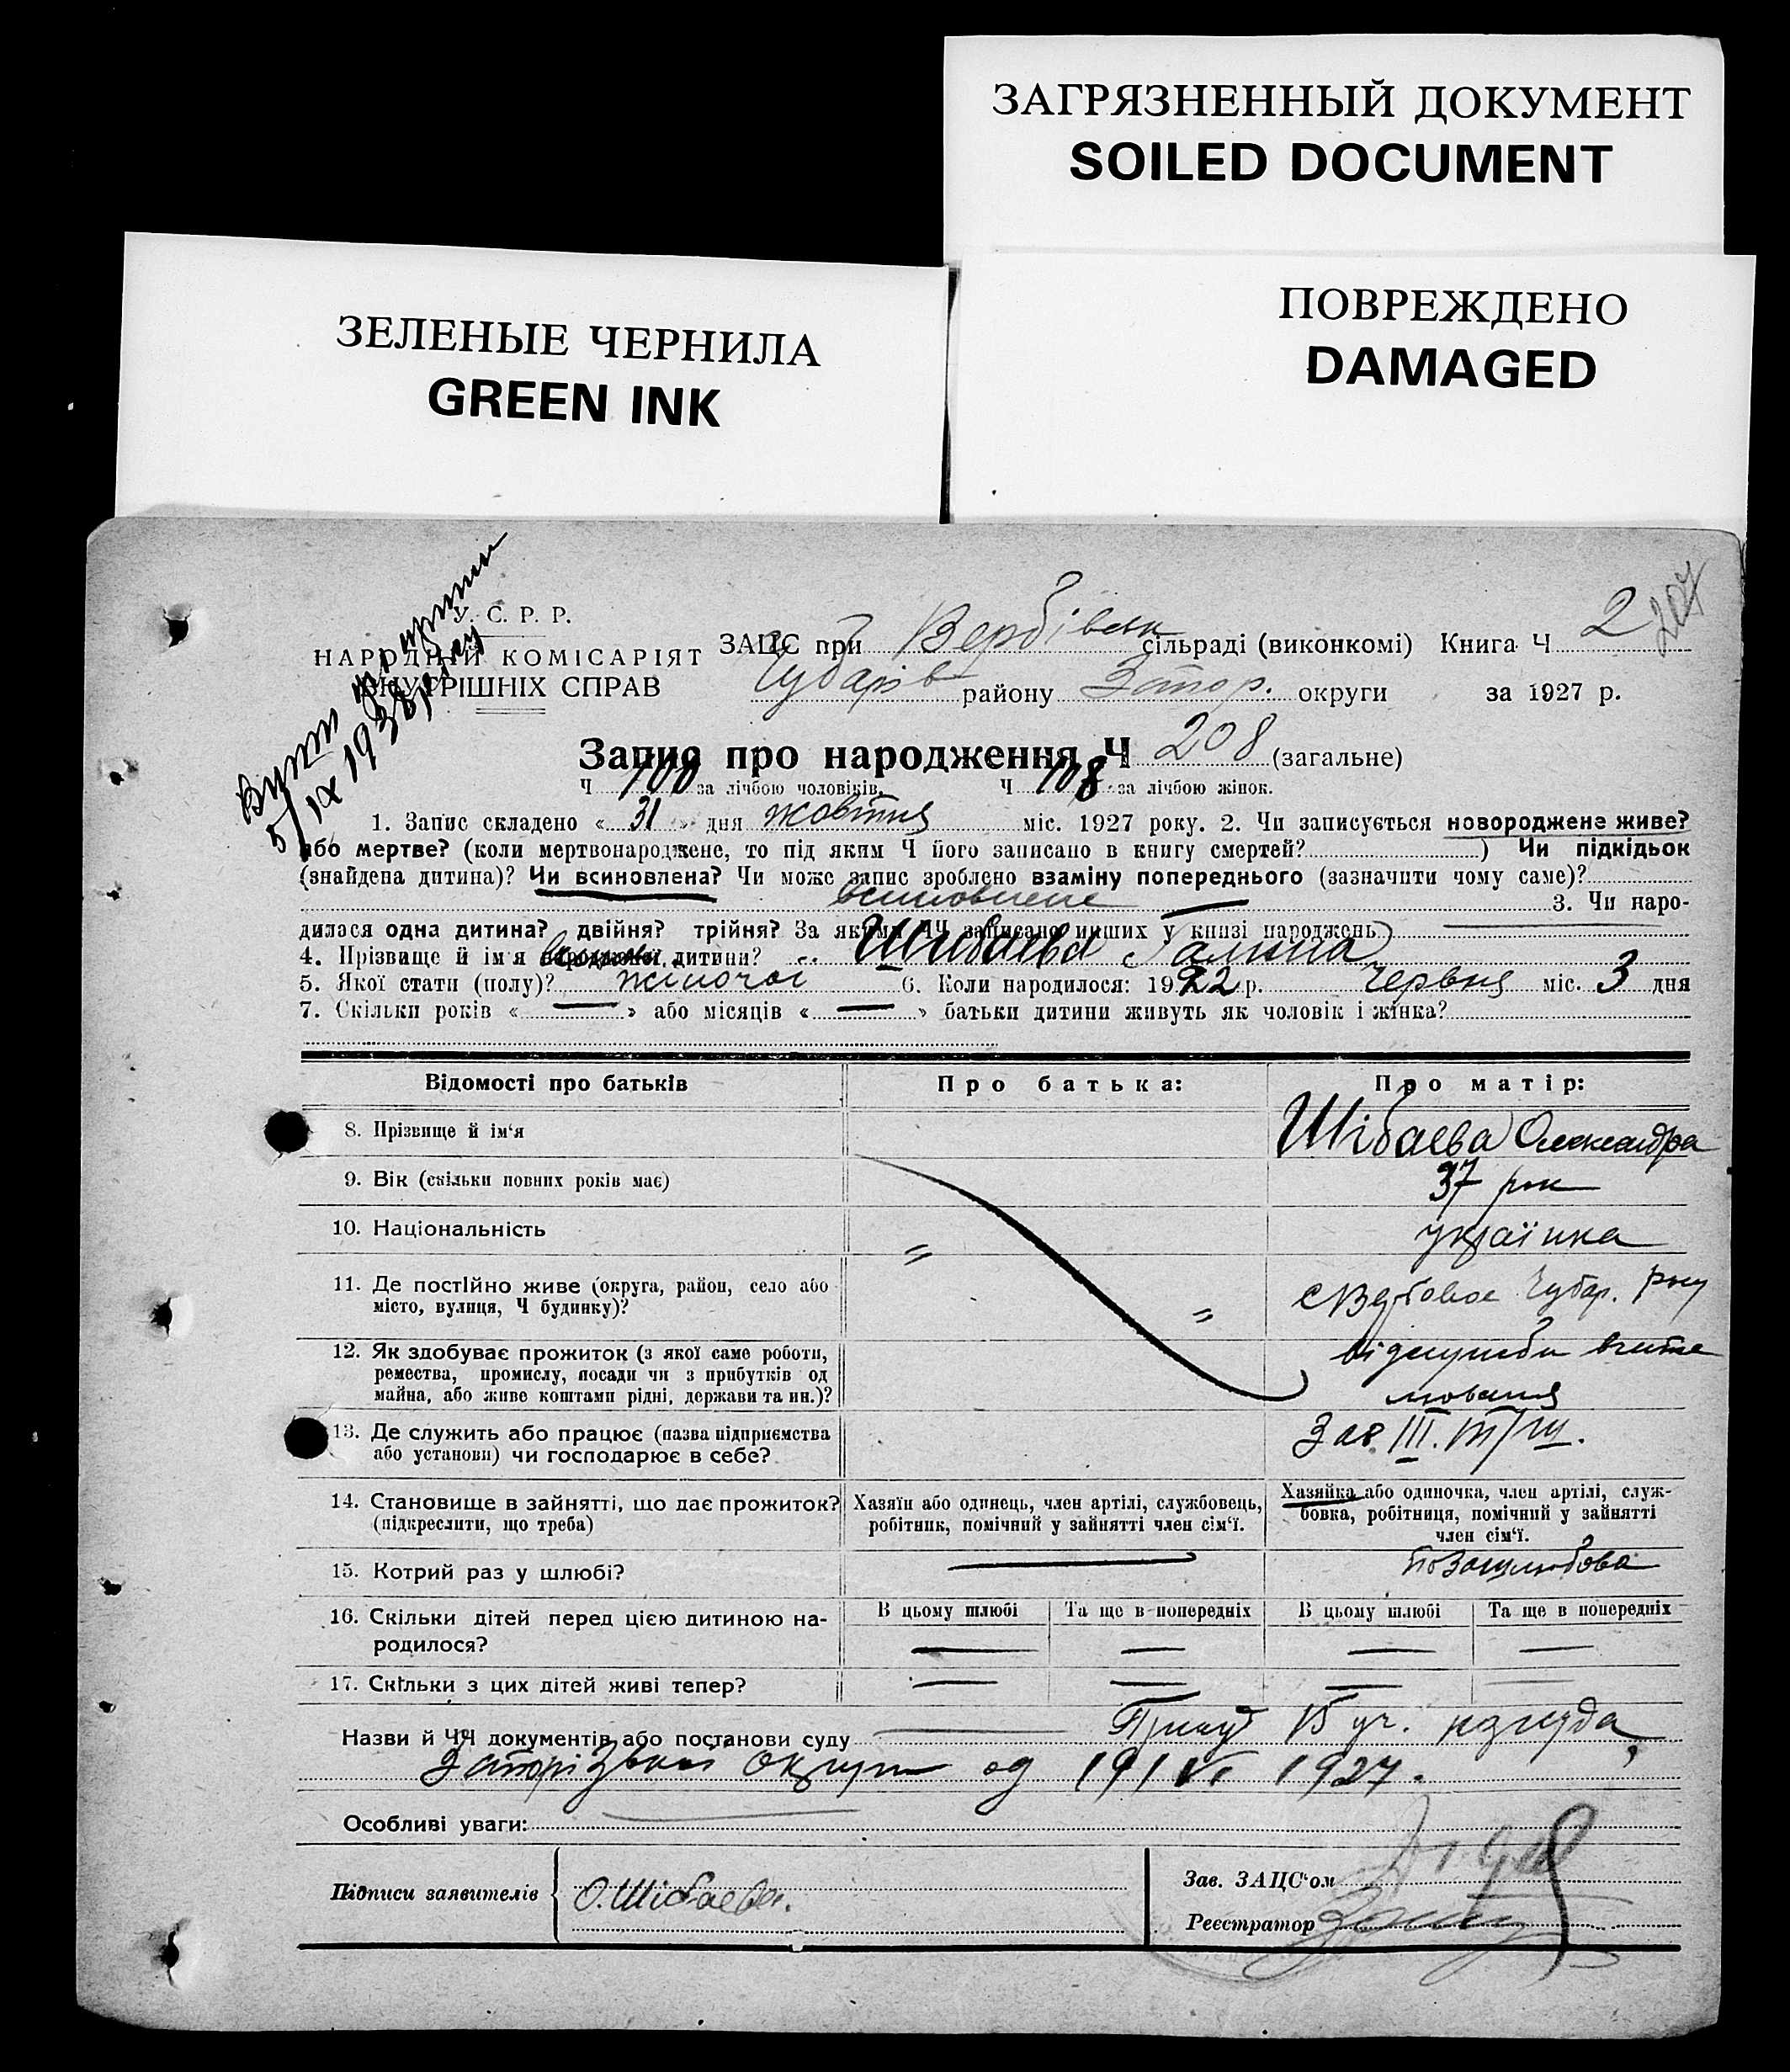 ЗАГРЯЗНЕННЫЙ ДОКУМЕНТ
SOILED DOCUMENT
ЗЕЛЕНЫЕ ЧЕРНИЛА
GREEN INK
ПОВРЕЖДЕНО
DAMAGED
5/IX 1938
207
У. С. Р. Р.
НАРОДНІЙ КОМІСАРІЯТ
ВНУТРІШНІХ СПРАВ
ЗАЦС при Вербівськ сільраді (виконкомі) Книга Ч 2
Чубарів району Запор. округи за 1927 р.
Запис про народження Ч 208 (загальне)
Ч 100 за лічбою чоловіків. Ч 108 за лічбою жінок.
1. Запис складено « 31 » дня жовтня міс. 1927 року. 2. Чи записується новороджене живе?
або мертве? (коли мертвонароджене, то під яким Ч його записано в книгу смертей? ) Чи підкідьок
(знайдена дитина)? Чи всиновлена? Чи може запис зроблено взаміну попереднього (зазначити чому саме)?
всиновлене 3. Чи наро-
дилася одна дитина? двійня? трійня? За якими ЧЧ записано инших у книзі народжень
4. Прізвище й ім'я дитини? Шибаєва Галина
5. Якої стати (полу)? жіночої 6. Коли народилося: 1922 р. червня міс. 3 дня
7. Скільки років « — » або місяців « — » батьки дитини живуть як чоловік і жінка?
Відомості про батьків Про батька: Про матір:
8. Прізвище й ім'я Шібаєва Олександра
9. Вік (скільки повних років має) 37 рок
10. Національність " українка
11. Де постійно живе (округа, район, село або місто, вулиця, Ч будинку)? " с Вербовое Чубар. рну
12. Як здобуває прожиток (з якої саме роботи,
ремества, промислу, посади чи з прибутків од
майна, або живе коштами рідні, держави та ин.)?
від служби вчителювання
13. Де служить або працює (назва підприємства
або установи) чи господарює в себе?
Зав. III.
14. Становище в зайнятті, що дає прожиток?
(підкреслити, що треба)
Хазяїн або одинець, член артілі, службовець,
робітник, помічний у зайнятті член сім'ї.
Хазяйка або одиночка, член артілі, служ-
бовка, робітниця, помічний у зайнятті
член сім'ї.
15. Котрий раз у шлюбі? — позашлюбова
16. Скільки дітей перед цією дитиною на-
родилося?
В цьому шлюбі Та ще в попередніх В цьому шлюбі Та ще в попередніх
— — — —
17. Скільки з цих дітей живі тепер? — — — —
Назви й ЧЧ документів або постанови суду 15 уч. нарсуда
Запорізької округи од 19/VI 1927.
Особливі уваги:
Підписи заявителів О. Шібаєва.
Зав. ЗАЦС'ом
Реєстратор